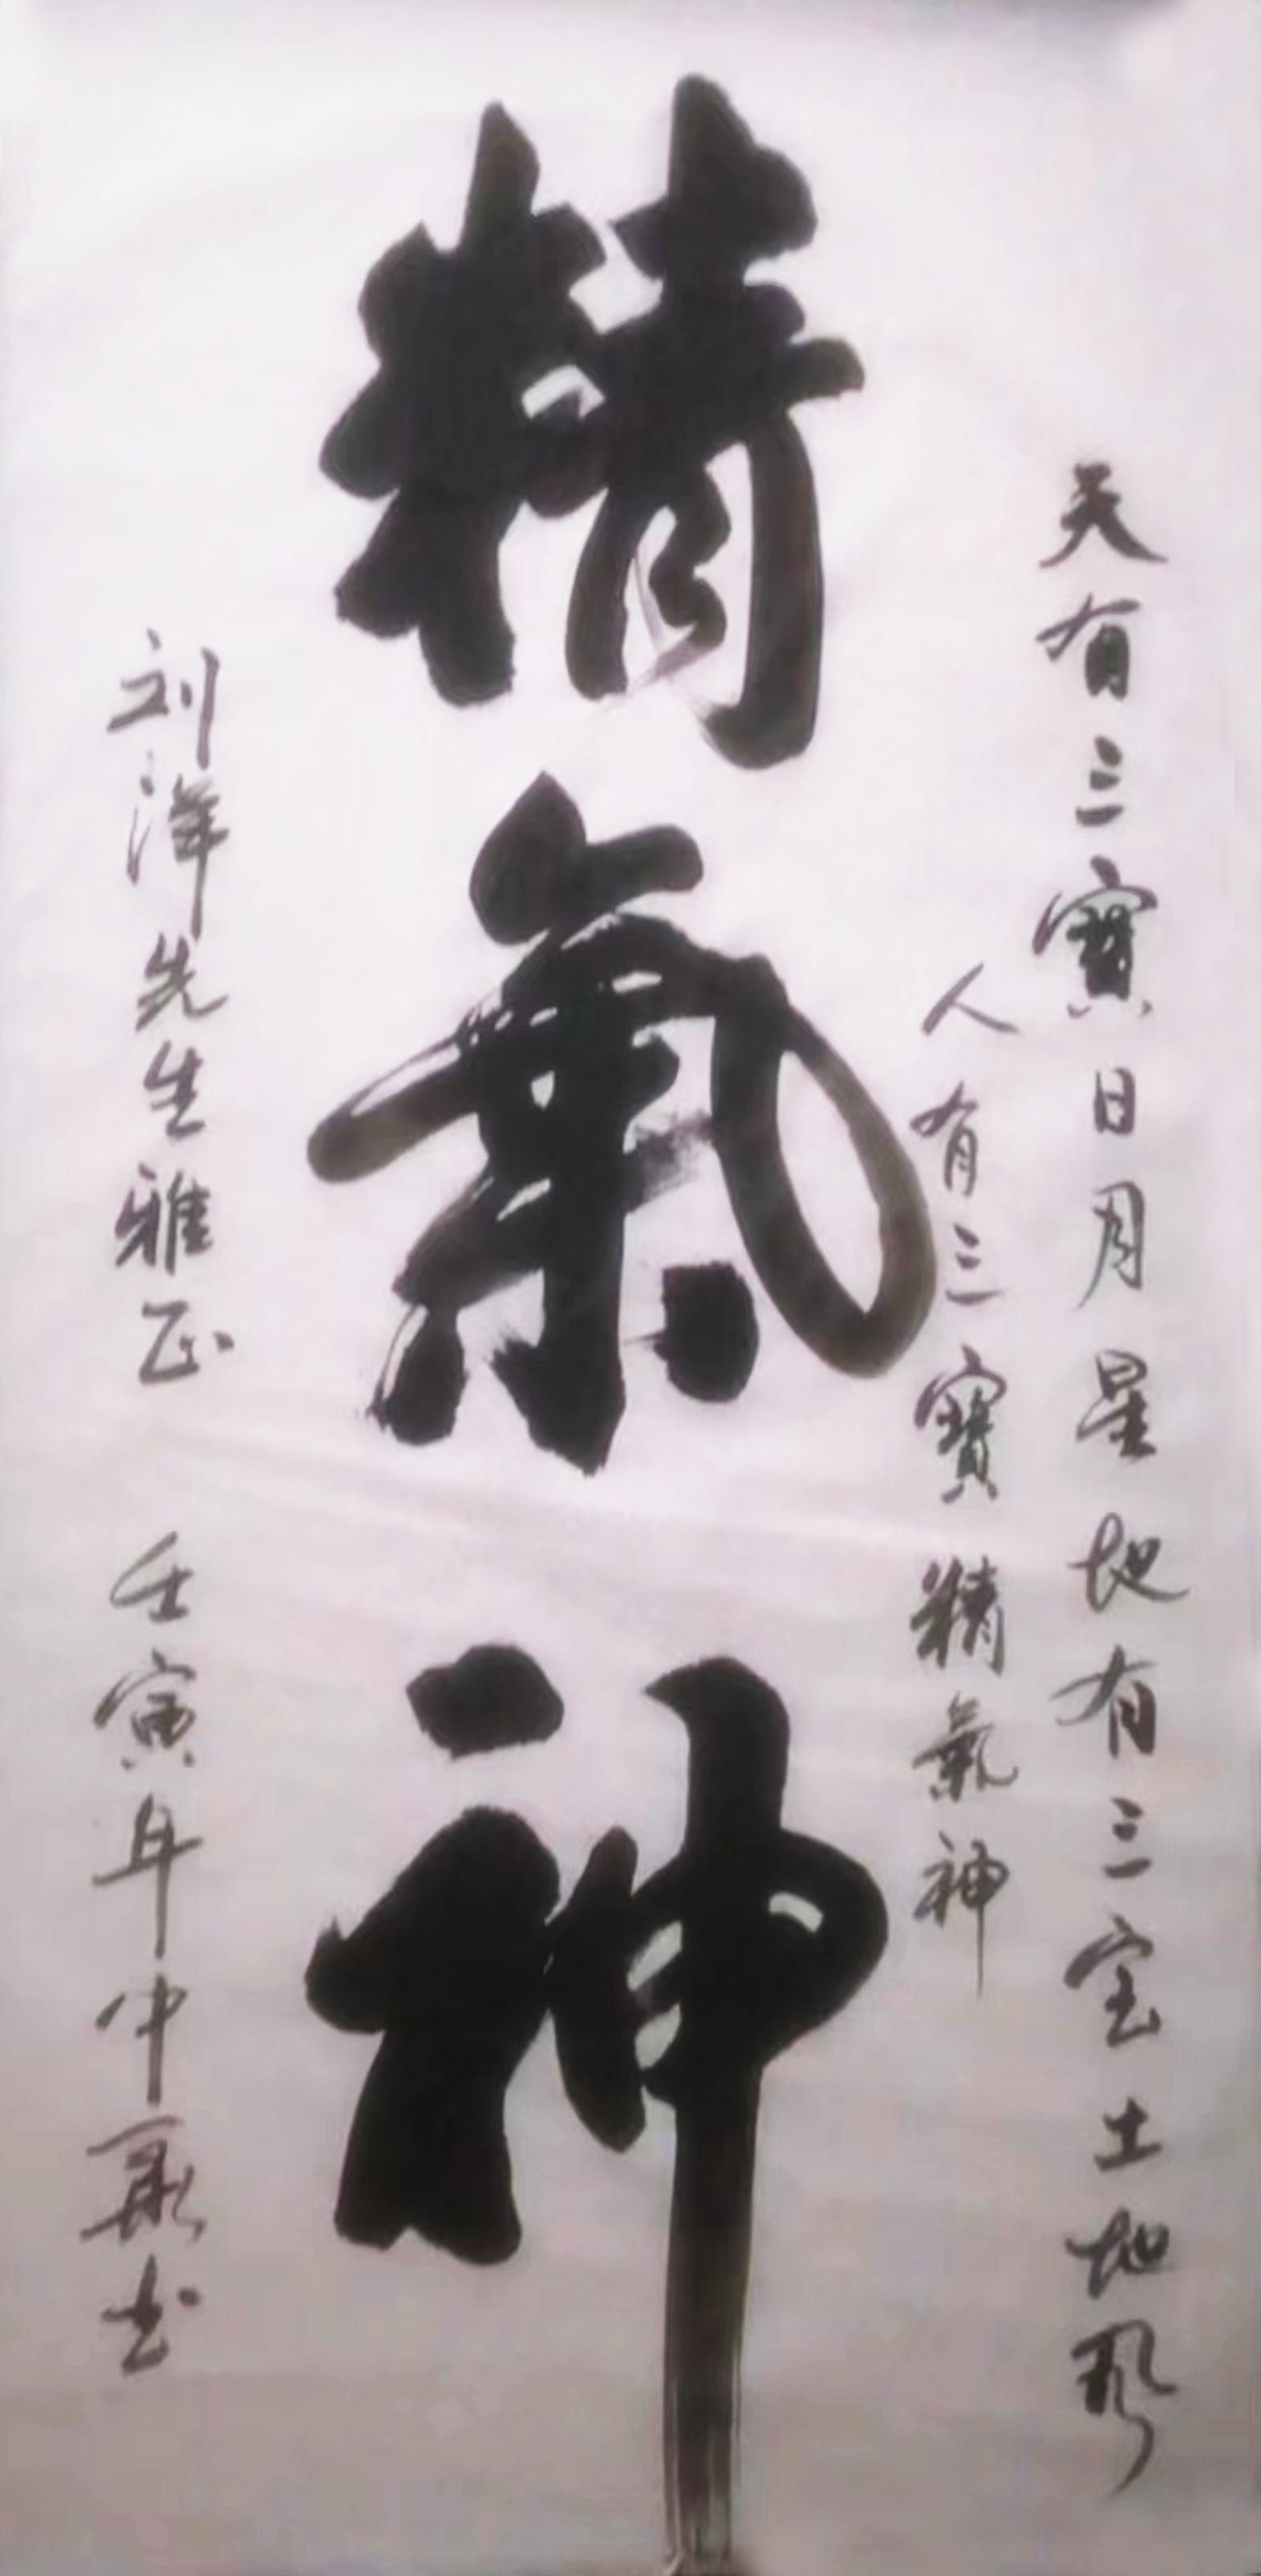 天有三寳日月星地有三宝土地风
人有三寳精氣神
精氣神
刘洋先生雅正 壬寅年中夏书